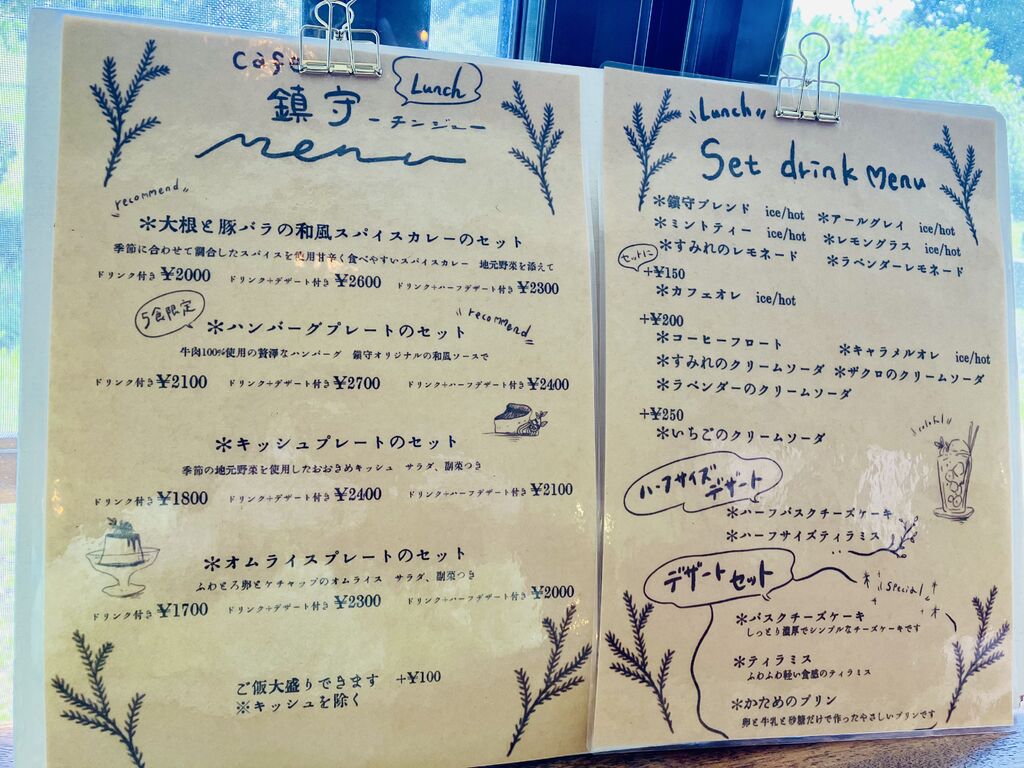 cafe
Lunch
鎮守 ーチンジューー
menu
recommend
＊大根と豚バラの和風スパイスカレーのセット
季節に合わせて調合したスパイスを使用甘辛く食べやすいスパイスカレー　地元野菜を添えて
ドリンク付き¥2000　ドリンク+デザート付き¥2600　ドリンク+ハーフデザート付き¥2300
5食限定
recommend
＊ハンバーグプレートのセット
牛肉100%使用の贅澤なハンバーグ　鎮守オリジナルの和風ソースで
ドリンク付き¥2100　ドリンク+デザート付き¥2700　ドリンク+ハーフデザート付き¥2400
＊キッシュプレートのセット
季節の地元野菜を使用したおおきめキッシュ　サラダ、副菜つき
ドリンク付き¥1800　ドリンク+デザート付き¥2400　ドリンク+ハーフデザート付き¥2100
＊オムライスプレートのセット
ふわとろ卵とケチャップのオムライス　サラダ、副菜つき
ドリンク付き¥1700　ドリンク+デザート付き¥2300　ドリンク+ハーフデザート付き¥2000
ご飯大盛りできます　+¥100
※キッシュを除く
Lunch
Set drink menu
＊鎮守ブレンド　ice/hot　＊アールグレイ　ice/hot
＊ミントティー　ice/hot　＊レモングラス　ice/hot
＊すみれのレモネード　＊ラベンダーレモネード
セットに
+¥150
＊カフェオレ　ice/hot
+¥200
＊コーヒーフロート　＊キャラメルオレ　ice/hot
＊すみれのクリームソーダ　＊ザクロのクリームソーダ
＊ラベンダーのクリームソーダ
+¥250
＊いちごのクリームソーダ
colorful
ハーフサイズデザート
＊ハーフバスクチーズケーキ
＊ハーフサイズティラミス
デザートセット
special
＊バスクチーズケーキ
しっとり濃厚でシンプルなチーズケーキです
＊ティラミス
ふわふわ軽い食感のティラミス
＊かためのプリン
卵と牛乳と砂糖だけで作ったやさしいプリンです